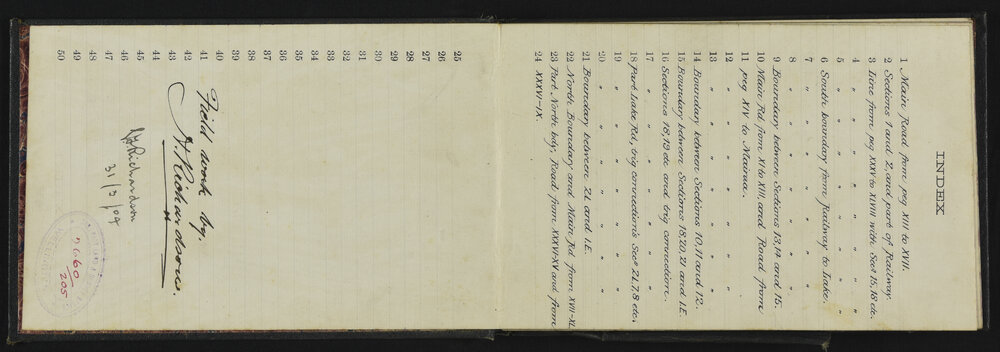 INDEX
1 Main Road from peg XIII to XVII.
2 Sections 1 and 2, and part of Railway.
3 Line from peg XXXV to XLVIII with Secs 15, 18 etc.
4 " " "
5 " " "
6 South boundary from Railway to Lake.
7 " " "
8 " " "
9 Boundary between Sections 13, 14 and 15.
10 Main Rd. from XI to XIII, and Road from
11 peg XIV to Mairua.
12 " " " "
13 " " " "
14 Boundary between Sections 10, 11 and 12.
15 Boundary between Sections 18, 20, 21 and 1.E.
16 Sections 18, 19 etc and trig connection.
17 " " " "
18 Part Lake Rd., trig connections Secs 2, 1, 7, 8 etc.
19 " " " "
20 " " " "
21 Boundary between 21 and 1.E.
22 North Boundary and Main Rd from XVII-XL
23 Part North bdy, Road from XXXVI-XV and from
24 XXXVI-IX.
25
26
27
28
29
30
31
32
33
34
35
36
37
38
39
40
41
42
43
44
45
46
47
48
49
50
Field work by.
H. Richardson.
H Richardson
31/3/09
2660
205